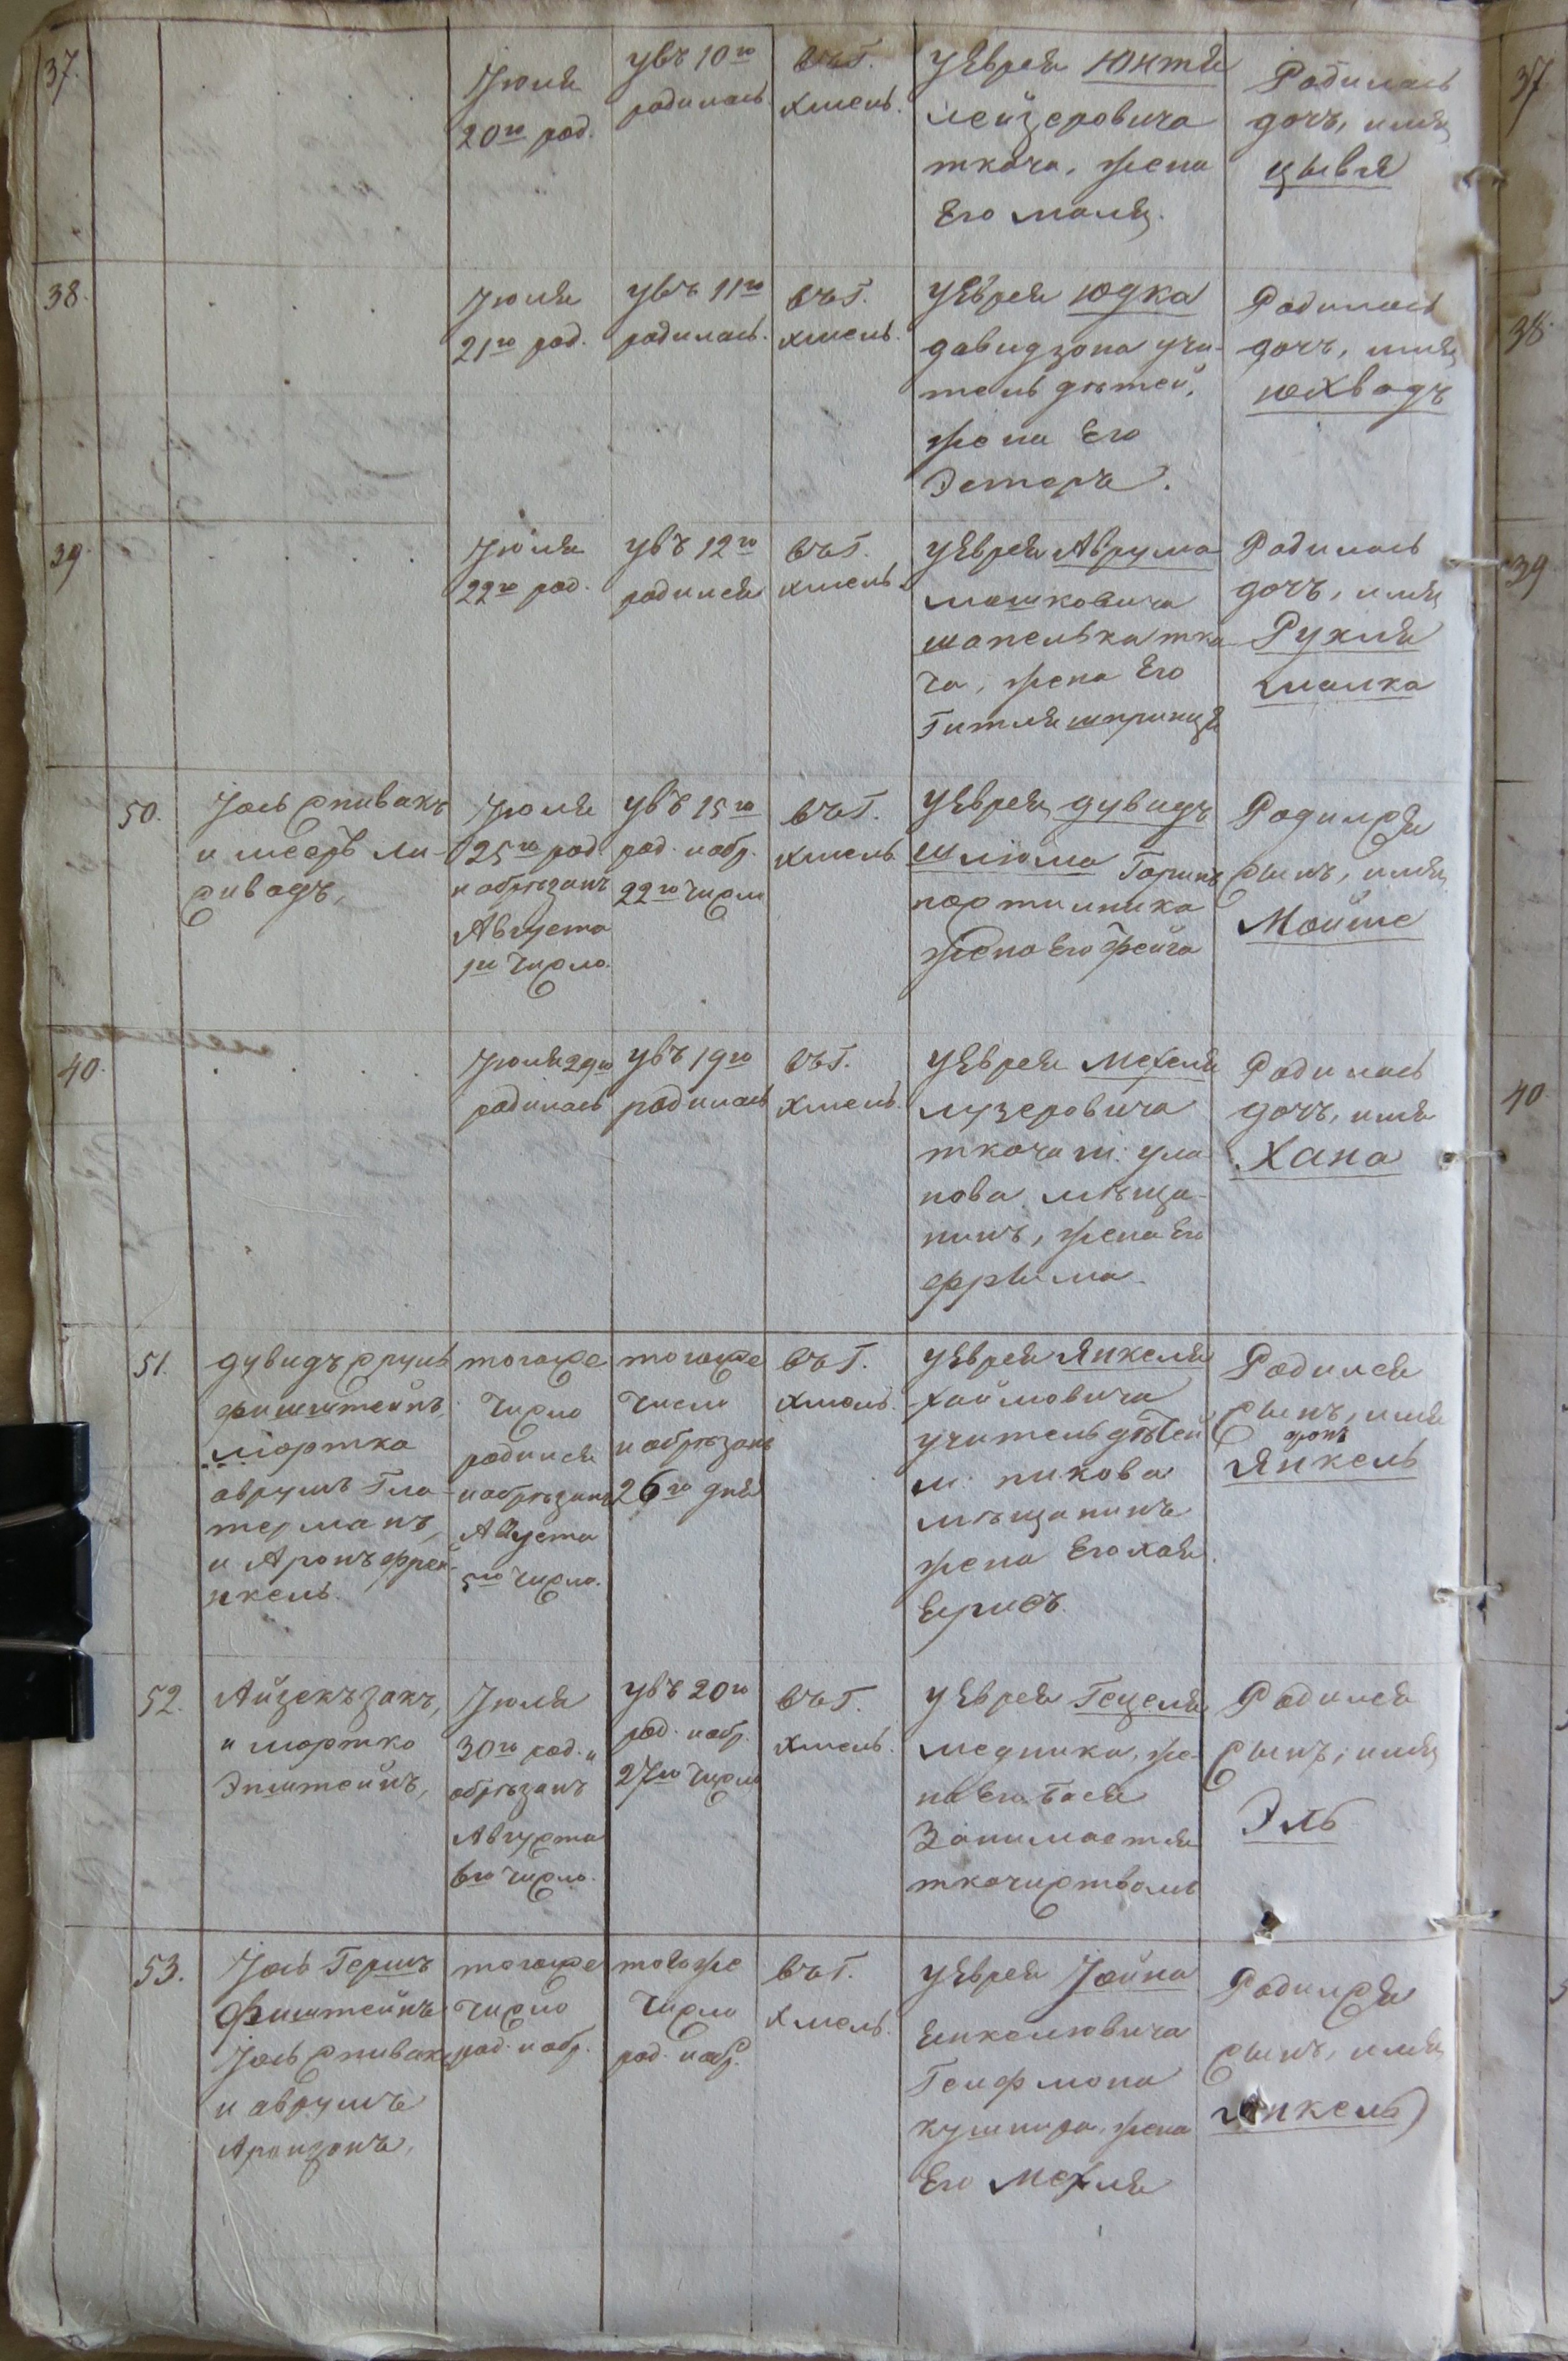 37.
Іюля
20го род.
увъ 10го
родилась.
въ Г.
хмель.
у Еврея Юнтя
лейзеровича
ткача, жена
Его маля.
Родилась
дочь, имя
цывя
37
38.
Іюля
21го род.
увъ 11го
родилась.
въ Г.
хмель.
у Еврея Юдка
давидзона учи-
тель дѣтей,
жена Его
Эстеръ.
Родилась
дочь, имя
юхвадъ
38.
39.
Іюля
22го род.
увъ 12го
родился
въ Г.
хмель.
у Еврея Аврума
мошковича
шапелька тка
ча, жена Его
Гитля шпринця
Родилась
дочь, имя
Рухля
малка
39.
50.
Іось спивакъ
и мееръ ли-
сивадъ,
Іюля
25го род.
и обрѣзанъ
Августа
1го число.
увъ 15го
род. и обр.
22го число
въ Г.
хмель
у Еврея дувидъ
шлюма
портнника
жена Его Фейга
Родился
сынъ, имя
Мойше
40.
Іюля 29го
родилась
увъ 19го
родилась
въ Г.
хмель.
у Еврея Мехеля
лузеровича
ткача м. ула
нова мѣща-
нинъ, жена Его
фрима.
Родилась
дочь, имя
Хана
40.
51.
дувидъ сруль
фишштейнъ,
мортка
аврумъ Гла-
терманъ,
и Аронъ френ-
кель.
тогоже
число
родился
и обрѣзанъ
Августа
5го число.
тогоже
число
и обрѣзанъ
26го дня
въ Г.
хмель.
у Еврея Янкеля
хаймовича
учитель дѣтей
м. пикова
мѣщанинъ
жена Его хая
Родился
сынъ, имя
аронъ
Янкель
52.
Айзекъ закъ,
и мортко
Эпштейнъ,
Іюля
30го род. и
обрѣзанъ
Августа
6го число.
увъ 20го
род. и обр.
27го число
въ Г.
хмель.
у Еврея Гецеля
медника, же-
на Его Бася
Занимается
ткачиством
Родился
сынъ, имя
Эль
53.
Іось Гершъ
Фиштейнъ
Іось спивакъ
и аврумъ
Аронзонъ,
тогоже
число
род. и обр.
тогоже
число
род. и обр.
въ Г.
хмель.
у Еврея Іойна
янкелювича
Гельфмана
кушнира, жена
Его Мехля
Родился
сынъ, имя
Янкель